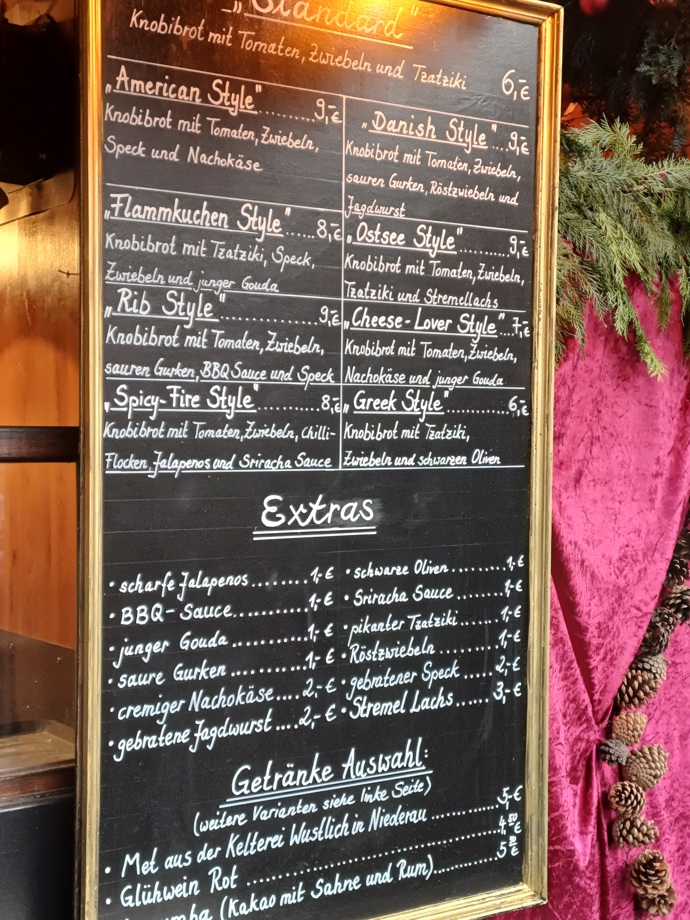 „Standard"
Knobibrot mit Tomaten, Zwiebeln und Tzatziki 6,-€
„American Style".........9,-€
Knobibrot mit Tomaten, Zwiebeln,
Speck und Nachokäse
„Danish Style"...9,-€
Knobibrot mit Tomaten, Zwiebeln,
sauren Gurken, Röstzwiebeln und
Jagdwurst
„Flammkuchen Style"......8,-€
Knobibrot mit Tzatziki, Speck,
Zwiebeln und junger Gouda
„Ostsee Style".........9,-€
Knobibrot mit Tomaten, Zwiebeln,
Tzatziki und Stremellachs
„Rib Style"...............9,-€
Knobibrot mit Tomaten, Zwiebeln,
sauren Gurken, BBQ Sauce und Speck
„Cheese-Lover Style"...7,-€
Knobibrot mit Tomaten, Zwiebeln,
Nachokäse und junger Gouda
„Spicy-Fire Style"..........8,-€
Knobibrot mit Tomaten, Zwiebeln, Chilli-
Flocken, Jalapenos und Sriracha Sauce
„Greek Style"...........6,-€
Knobibrot mit Tzatziki,
Zwiebeln und schwarzen Oliven
Extras
• scharfe Jalapenos.........1,-€
• BBQ-Sauce............1,-€
• junger Gouda...........1,-€
• saure Gurken...........1,-€
• cremiger Nachokäse....2,-€
• gebratene Jagdwurst....2,-€
• schwarze Oliven.........1,-€
• Sriracha Sauce.........1,-€
• pikanter Tzatziki......1,-€
• Röstzwiebeln.........1,-€
• gebratener Speck.....2,-€
• Stremel Lachs......3,-€
Getränke Auswahl:
(weitere Varianten siehe linke Seite)
• Met aus der Kelterei Wustlich in Niederau............5,-€
• Glühwein Rot ..............................4,50€
(Kakao mit Sahne und Rum)..............5,50€